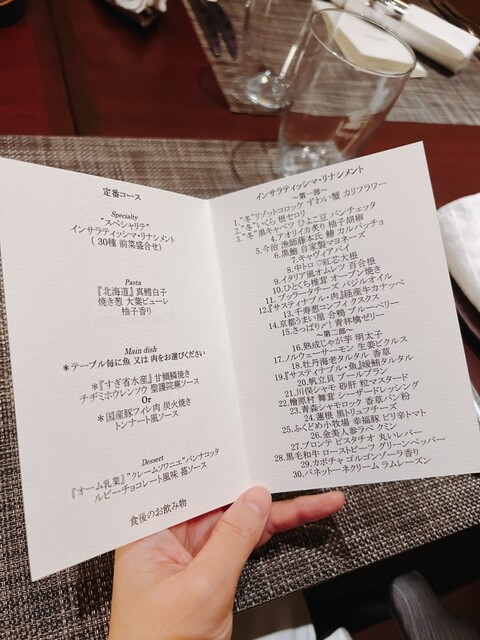 定番コース
Specialty
"スペシャリテ"
インサラティッシマ・リナシメント
( 30種 前菜盛合せ )
Pasta
『北海道』真鱈白子
焼き葱 大葉ピューレ
柚子香り
Main dish
*テーブル毎に魚 又は 肉をお選びください
*『すぎ省水産』甘鯛鱗焼き
チヂミホウレンソウ 聖護院蕪ソース
Or
*国産豚フィレ肉 炭火焼き
トンナート風ソース
Dessert
『オーム乳業』"クレームソワニエ"パンナコッタ
ルビーチョコレート風味 苺ソース
食後のお飲み物
インサラティッシマ・リナシメント
~第一部~
1."冬"リゾットコロッケ ずわい蟹 カリフラワー
2."冬"いくら 根セロリ
3."冬"黒キャベツ ひよこ豆 パンチェッタ
4.アオリイカ炙り 柚子胡椒
5.今治 漁師藤本氏 鰆 カルパッチョ
6.黒鮑 自家製マヨネーズ
7.キャヴィアパイ
8.中トロ ♡紅芯大根
9.イタリア風オムレツ 百合根
10.ひとくち椎茸 オーブン焼き
11.ブッラータチーズ バジルオイル
12.『サスティナブル・肉』経産牛カナッペ
13.千寿葱コンフィ クスクス
14.京都うまい屋 合鴨 ブルーベリー
15.さっぱり♪! 青林檎ゼリー
~第二部~
16.熟成じゃが芋 明太子
17.ノルウェーサーモン 生姜ピクルス
18.牡丹海老タルタル 香草
19.『サスティナブル・魚』鰹鮪タルタル
20.帆立貝 ブールブラン
21.川俣シャモ 砂肝 粒マスタード
22.檜原村 舞茸 シーザードレッシング
23.青森シャモロック 香草パン粉
24.蓮根 黒トリュフチーズ
25.ふくどめ小牧場 幸福豚 ピリ辛トマト
26.金美人参ラペ クミン
27.ブロンテ ピスタチオ 丸いレバー
28.黒毛和牛 ローストビーフ グリーンペッパー
29.カボチャ ゴルゴンゾーラ香り
30.パネットーネクリーム ラムレーズン